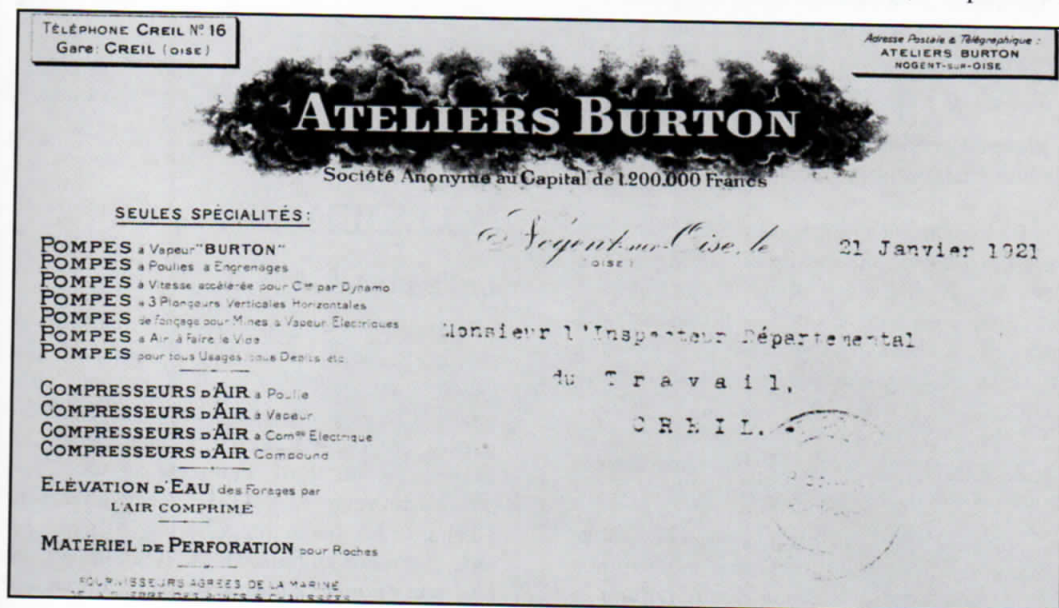 TÉLÉPHONE CREIL Nº 16
Gare: CREIL (OISE)
Adresse Postale & Télégraphique :
ATELIERS BURTON
NOGENT-SUR-OISE
ATELIERS BURTON
Société Anonyme au Capital de 1.200.000 Francs
SEULES SPÉCIALITÉS:
POMPES à Vapeur "BURTON"
POMPES à Poulies à Engrenages
POMPES à Vitesse accélérée pour Cde par Dynamo
POMPES à 3 Plongeurs Verticales Horizontales
POMPES de fonçage pour Mines à Vapeur Electriques
POMPES à Air à faire le Vide
POMPES pour tous Usages tous Débits etc.
COMPRESSEURS D'AIR à Poulie
COMPRESSEURS D'AIR à Vapeur
COMPRESSEURS D'AIR à Comde Electrique
COMPRESSEURS D'AIR Compound
ELÉVATION D'EAU des Forages par
L'AIR COMPRIMÉ
MATÉRIEL DE PERFORATION pour Roches
FOURNISSEURS AGRÉÉS DE LA MARINE
DE LA GUERRE DES PONTS & CHAUSSÉES
Nogent-sur-Oise, le 21 Janvier 1921
(OISE)
Monsieur l'Inspecteur Départemental
du Travail,
CREIL.-